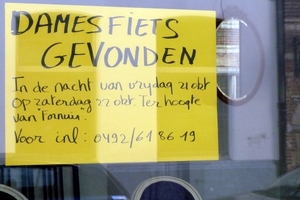 DAMESFIETS
GEVONDEN
In de nacht van vrijdag 21 okt
op zaterdag 22 okt. Ter hoogte
van "Fornuis".
Voor inl: 0492/61 86 19